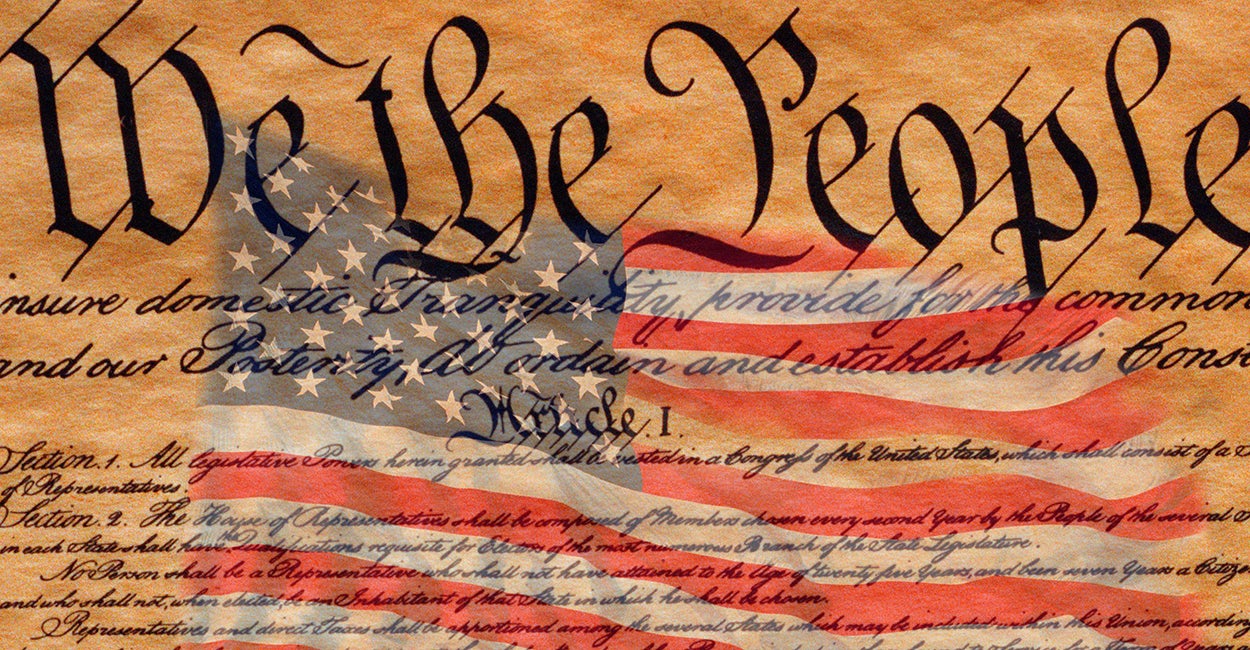 We the People
insure domestic Tranquility, provide for the common
and our Posterity, do ordain and establish this Const
Article. I.
Section. 1. All legislative Powers herein granted shall be vested in a Congress of the United States, which shall consist of a
of Representatives.
Section. 2. The House of Representatives shall be composed of Members chosen every second Year by the People of the several
in each State shall have the Qualifications requisite for Electors of the most numerous Branch of the State Legislature.
No Person shall be a Representative who shall not have attained to the Age of twenty five Years, and been seven Years a Citize
and who shall not, when elected, be an Inhabitant of that State in which he shall be chosen.
Representatives and direct Taxes shall be apportioned among the several States which may be included within this Union, according